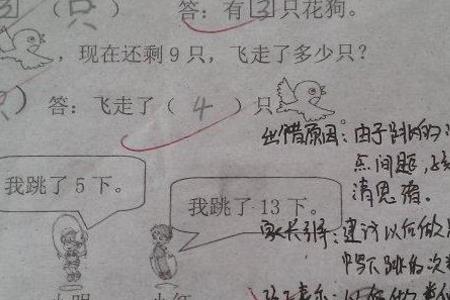 3 （只） 答：有3只花狗。
，现在还剩9只，飞走了多少只？
只） 答：飞走了（ 4 ）只
出错原因：由于
点问题，
清思绪。
我跳了5下。
我跳了13下。
家长引导：建议以后做
中写下跳的次数
小明
小红
以后做